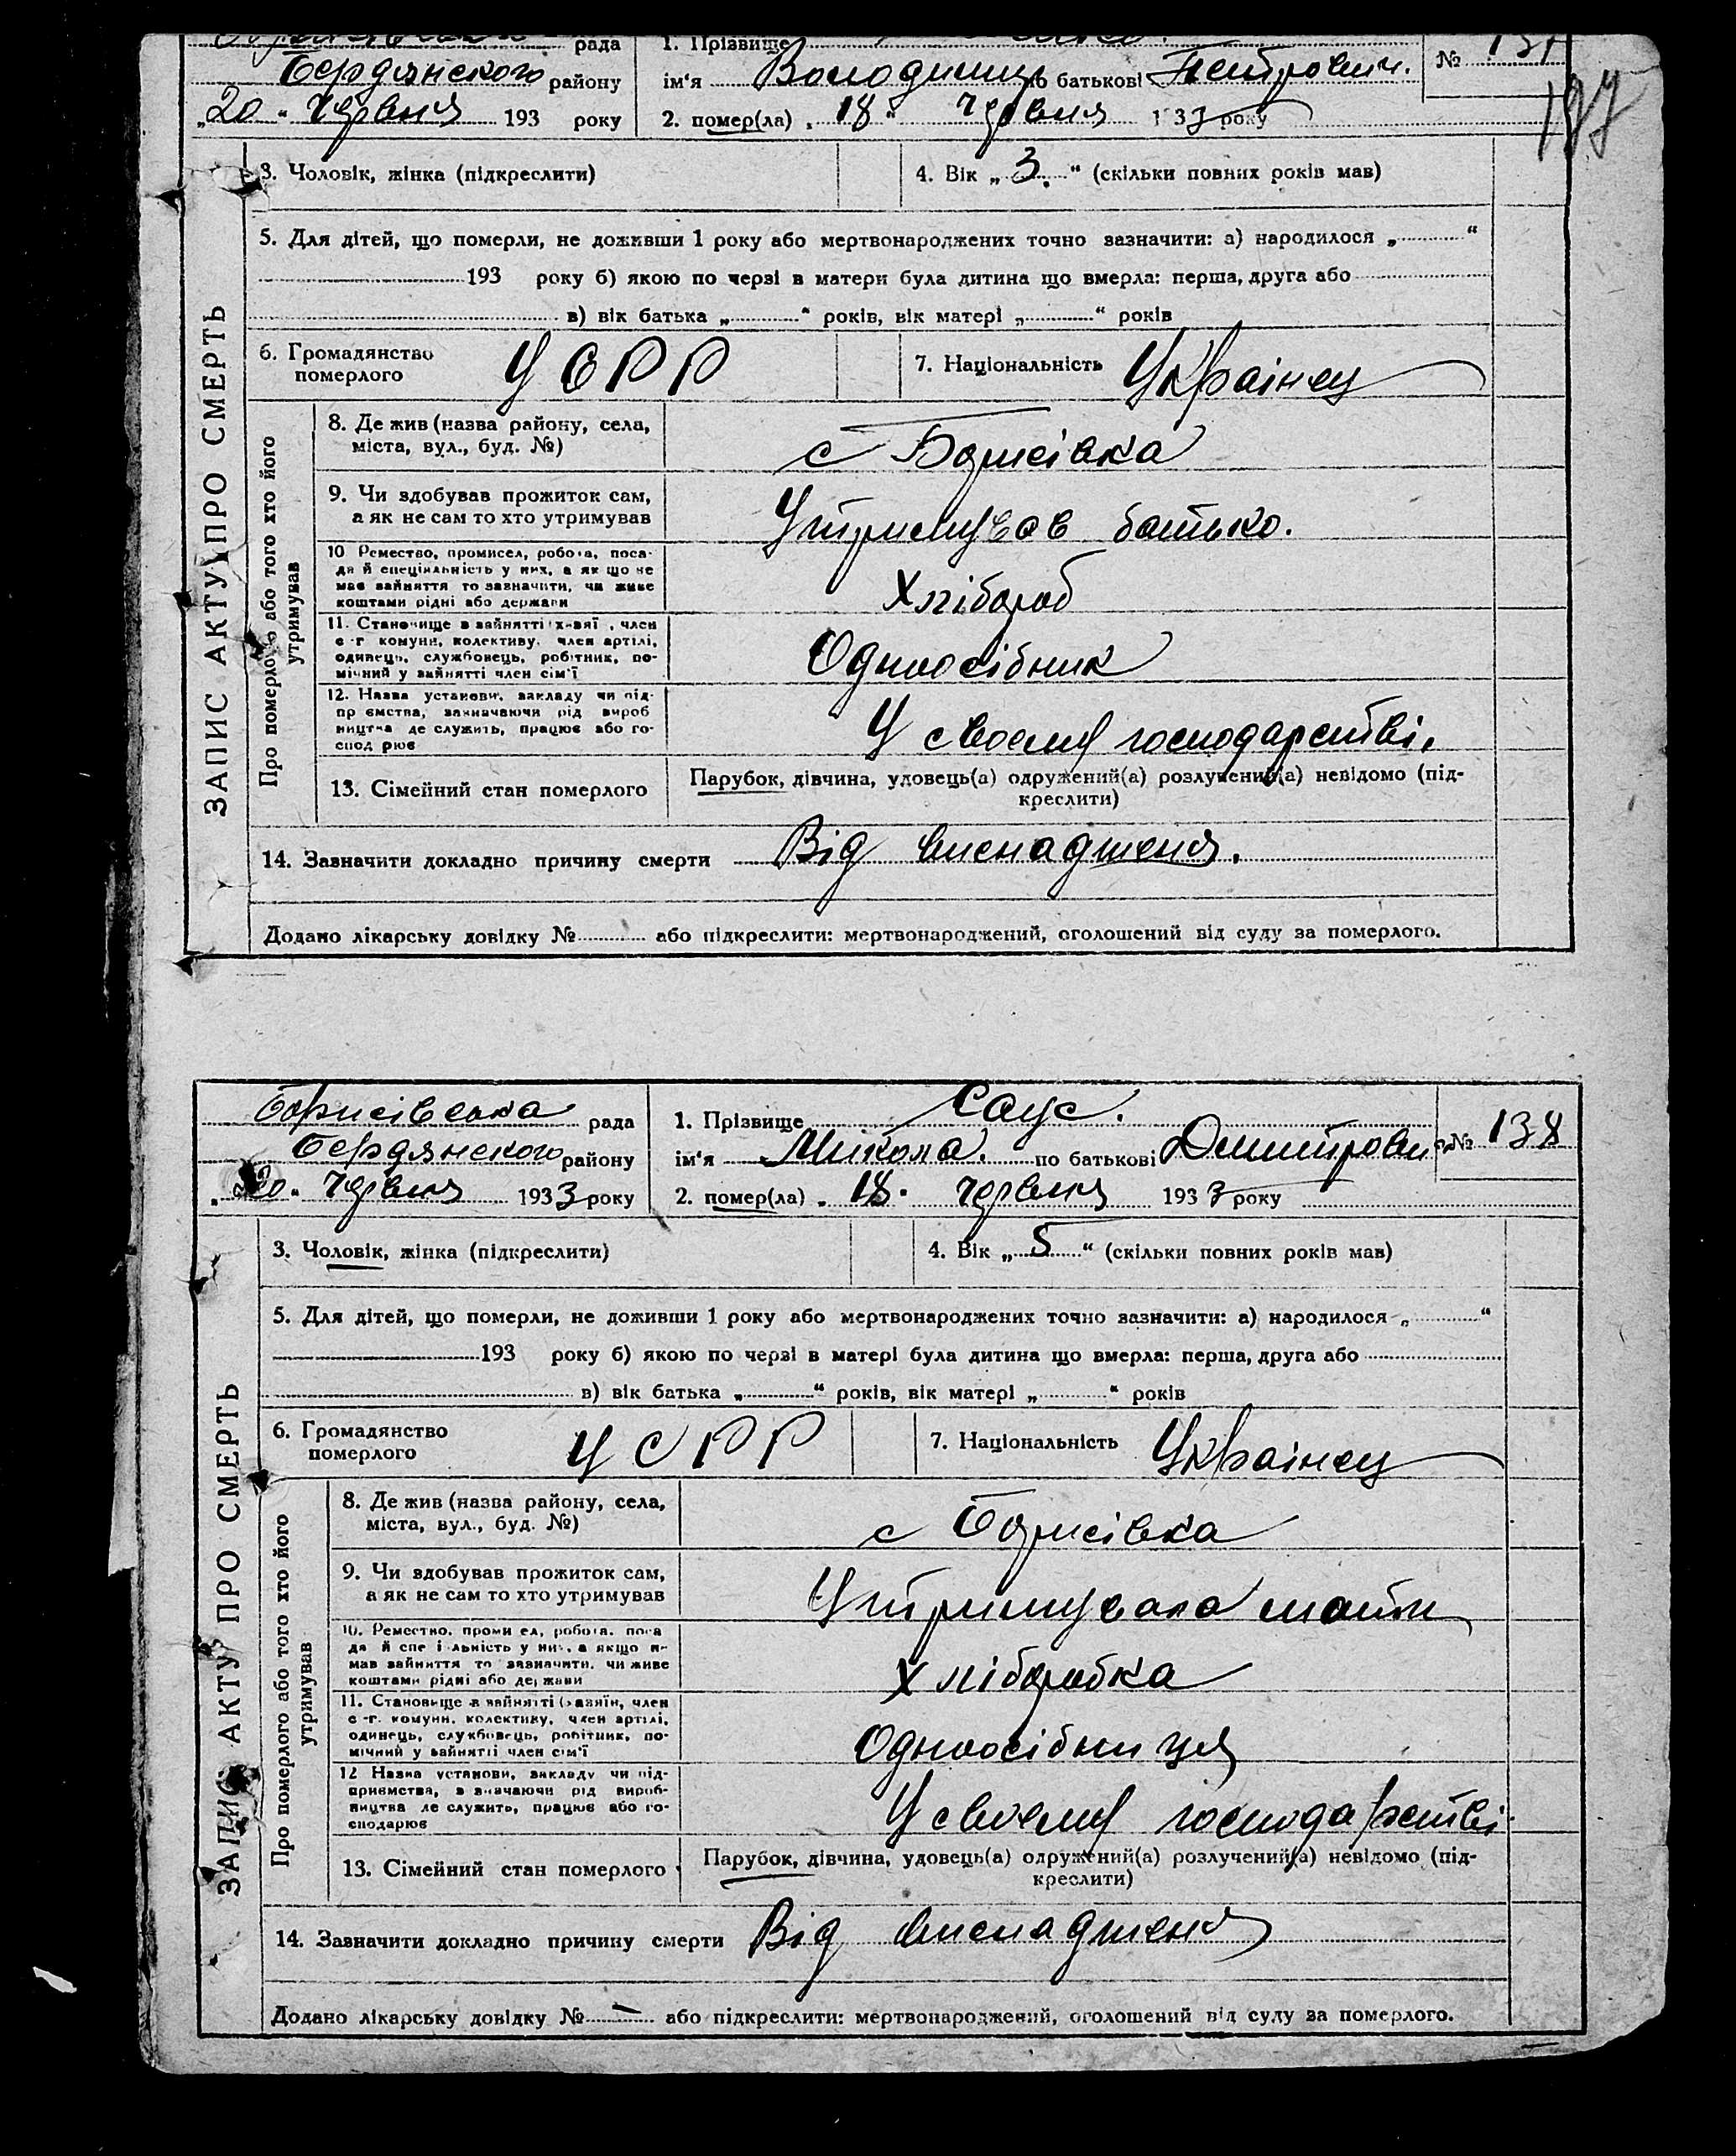 рада 1. Прізвище
Бердянського району ім'я Володимир по батькові Петрович. №
„20" червня 193 року 2. помер(ла) „18" червня 1933 року
197
3. Чоловік, жінка (підкреслити) 4. Вік „3." (скільки повних років мав)
5. Для дітей, що померли, не доживши 1 року або мертвонароджених точно зазначити: а) народилося „ "
193 року б) якою по черзі в матери була дитина що вмерла: перша, друга або
в) вік батька „ " років, вік матері „ " років
6. Громадянство померлого УСРР 7. Національність Українец
ЗАПИС АКТУ ПРО СМЕРТЬ
Про померлого або того хто його утримував
8. Де жив (назва району, села,
міста, вул., буд. №) с Борисівка
9. Чи здобував прожиток сам,
а як не сам то хто утримував Утримував батько.
10 Ремество, промисел, робота, поса-
да й спеціяльність у них, а як що не
мав зайняття то зазначити, чи живе
коштами рідні або держави Хлібороб
11. Становище в зайнятті хазяї, член
с-г комуни, колективу, член артілі,
одинець, службовець, робітник, по-
мічний у зайнятті член сім'ї Одноосібник
12. Назва установи, закладу чи під-
пр ємства, зазначаючи рід вироб
ництва де служить, працює або го-
спод рює У своєму господарстві.
13. Сімейний стан померлого Парубок, дівчина, удовець(а) одружений(а) розлучений(а) невідомо (під-
креслити)
14. Зазначити докладно причину смерти Від виснадження.
Додано лікарську довідку № або підкреслити: мертвонароджений, оголошений від суду за померлого.
Борисівська рада 1. Прізвище Саус.
Бердянського району ім'я Микола. по батькові Дмитрович № 138
„20" червня 1933 року 2. помер(ла) „18" червня 1933 року
3. Чоловік, жінка (підкреслити) 4. Вік „5" (скільки повних років мав)
5. Для дітей, що померли, не доживши 1 року або мертвонароджених точно зазначити: а) народилося „ "
193 року б) якою по черзі в матері була дитина що вмерла: перша, друга або
в) вік батька „ " років, вік матері „ " років
6. Громадянство померлого УСРР 7. Національність Українец
ЗАПИС АКТУ ПРО СМЕРТЬ
Про померлого або того хто його утримував
8. Де жив (назва району, села,
міста, вул., буд. №) с Борисівка
9. Чи здобував прожиток сам,
а як не сам то хто утримував Утримувала мати
10. Ремество, проми ел, робота, поса
да й спе і льність у них, а якщо н-
мав зайняття то зазначити, чи живе
коштами рідні або держави Хліборобка
11. Становище в зайнятті (хазяїн, член
с-г. комуни, колективу, член артілі,
одинець, службовець, робітник, по-
мічний у зайнятті член сім'ї Одноосібниця
12 Назва установи, закладу чи під-
приємства, зазначаючи рід вироб-
ництва де служить, працює або го-
сподарює У своєму господарстві.
13. Сімейний стан померлого Парубок, дівчина, удовець(а) одружений(а) розлучений(а) невідомо (під-
креслити)
14. Зазначити докладно причину смерти Від виснадження
Додано лікарську довідку № — або підкреслити: мертвонароджений, оголошений від суду за померлого.